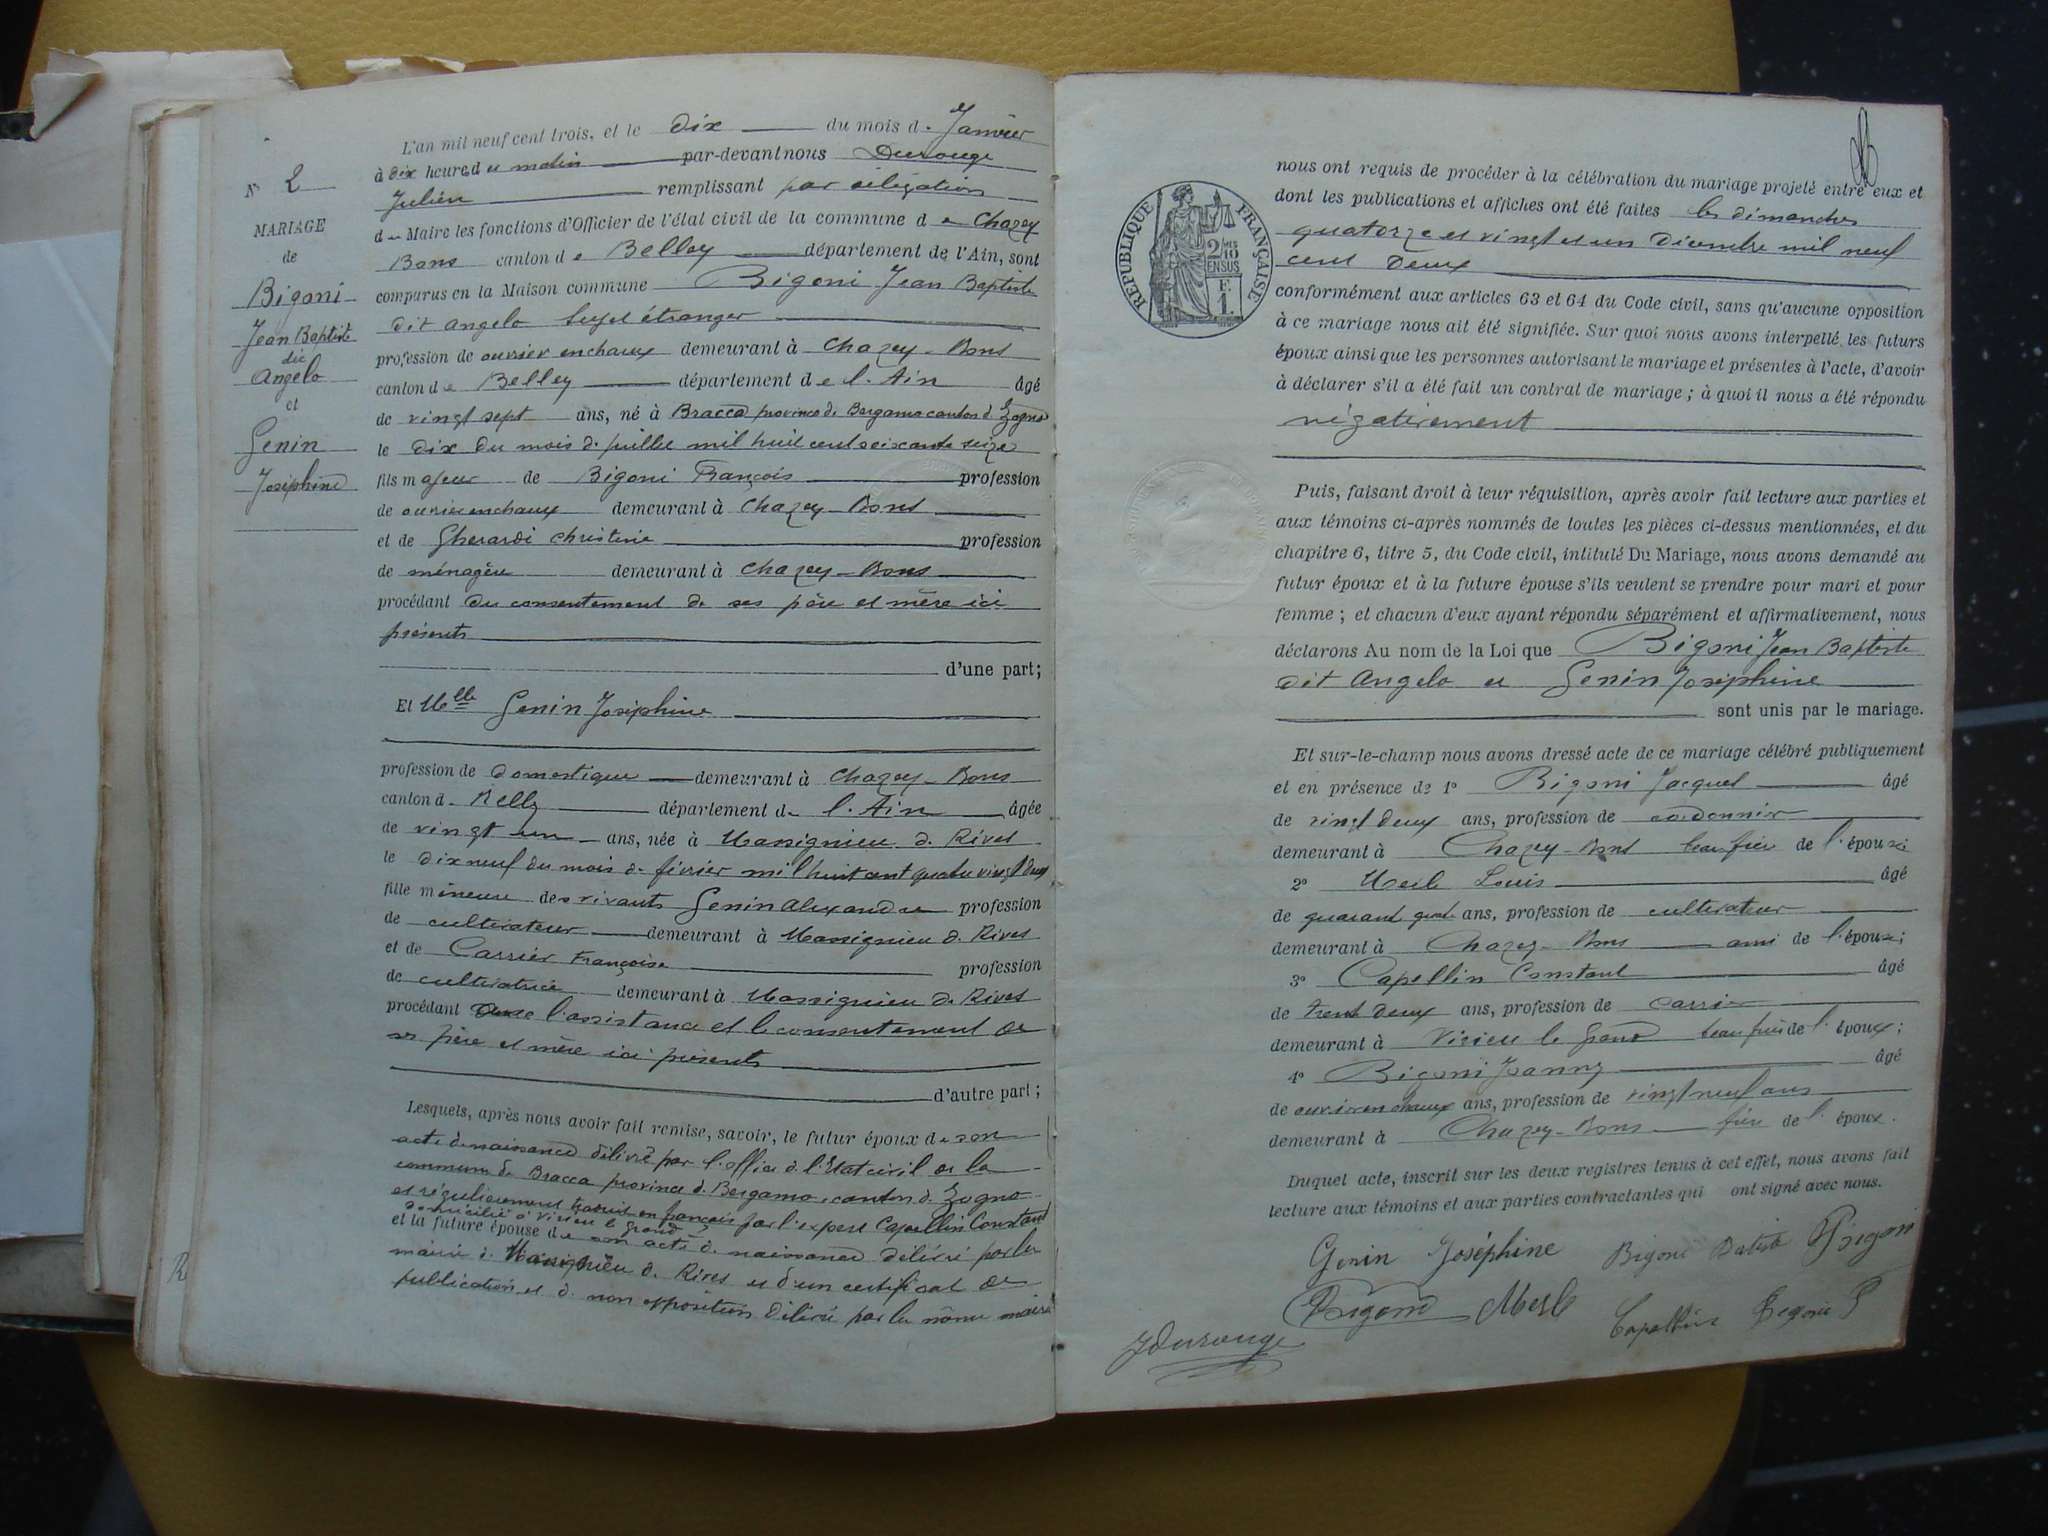 L'an mil neuf cent trois, et le dix du mois de Janvier
à dix heures du matin par-devant nous Durouge
Julien remplissant par délégation
du Maire les fonctions d'Officier de l'état civil de la commune de Chazey
Bons canton de Belley département de l'Ain, sont
comparus en la Maison commune Bigoni Jean Baptiste
dit Angelo Sujet étranger
profession de ouvrier en chaux demeurant à Chazey-Bons
canton de Belley département de l'Ain âgé
de vingt sept ans, né à Bracca province de Bergamo canton d Zogno
le dix du mois de juillet mil huit cent soixante seize
fils majeur de Bigoni François profession
de ouvrier en chaux demeurant à Chazey-Bons
et de Gherardi Christine profession
de ménagère demeurant à Chazey-Bons
procédant du consentement de ses père et mère ici
présents
d'une part;
Et Mlle Genin Joséphine
profession de domestique demeurant à Chazey-Bons
canton d. Belly département de l'Ain âgée
de vingt un ans, née à Massignieu d. Rives
le dix neuf du mois de février mil huit cent quatre vingt deux
fille mineure des vivants Genin Alexandre profession
de cultivateur demeurant à Massignieu d. Rives
et de Carrier Françoise profession
de cultivatrice demeurant à Massignieu de Rives
procédant l'assistance et le consentement de
ses père et mère ici présents
d'autre part;
Lesquels, après nous avoir fait remise, savoir, le futur époux de son
acte de naissance délivré par l'officier d l'Etat civil de la
commune de Bracca province d. Bergamo, canton d. Zogno
et régulièrement traduit en français par l'expert Capellin Constant
domicilié à Virieu le grand
et la future épouse de son acte de naissance délivré par la
mairie d. Massignieu d. Rives et d'un certificat de
publication et d. non opposition délivré par la même mairie
N° 2
MARIAGE
de
Bigoni
Jean Baptiste
dit
Angelo
et
Genin
Joséphine
RÉPUBLIQUE FRANÇAISE
2/10
EN SUS
F.
1.
nous ont requis de procéder à la célébration du mariage projeté entre eux et
dont les publications et affiches ont été faites les dimanches
quatorze et vingt et un Décembre mil neuf
cent deux
conformément aux articles 63 et 64 du Code civil, sans qu'aucune opposition
à ce mariage nous ait été signifiée. Sur quoi nous avons interpellé les futurs
époux ainsi que les personnes autorisant le mariage et présentes à l'acte, d'avoir
à déclarer s'il a été fait un contrat de mariage; à quoi il nous a été répondu
négativement
Puis, faisant droit à leur réquisition, après avoir fait lecture aux parties et
aux témoins ci-après nommés de toutes les pièces ci-dessus mentionnées, et du
chapitre 6, titre 5, du Code civil, intitulé Du Mariage, nous avons demandé au
futur époux et à la future épouse s'ils veulent se prendre pour mari et pour
femme; et chacun d'eux ayant répondu séparément et affirmativement, nous
déclarons Au nom de la Loi que Bigoni Jean Baptiste
dit Angelo et Genin Joséphine
sont unis par le mariage.
Et sur-le-champ nous avons dressé acte de ce mariage célébré publiquement
et en présence de 1° Bigoni Jacques âgé
de vingt deux ans, profession de cordonnier
demeurant à Chazey-Bons beau frère de l'épouse
2° Louis âgé
de quarant quatr ans, profession de cultivateur
demeurant à Chazey-Bons ami de l'épouse;
3° Capellin Constant âgé
de trent deux ans, profession de carrier
demeurant à Virieu le Grand beau frère de l'époux;
4° Bigoni Joanny âgé
de ouvrier en chaux ans, profession de vingt neuf ans
demeurant à Chazey-Bons frère de l'époux.
Duquel acte, inscrit sur les deux registres tenus à cet effet, nous avons fait
lecture aux témoins et aux parties contractantes qui ont signé avec nous.
Genin Joséphine Bigoni Batista Bigoni
Bigoni Capellin Bigoni
JDurouge